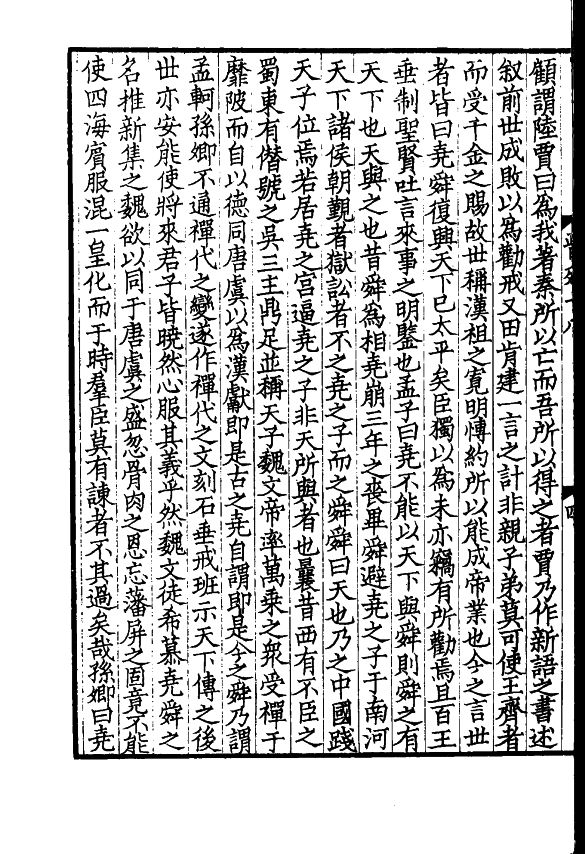 顧謂陸賈曰為我著秦所以亡而吾所以得之者賈乃作新語之書述
叙前世成敗以為勸戒又田肯建一言之計非親子弟莫可使王齊者
而受千金之賜故世稱漢祖之寛明愽約所以能成帝業也今之言世
者皆曰堯舜復興天下已太平矣臣獨以為未亦竊有所勸焉且百王
垂制聖賢吐言來事之明鑒也孟子曰堯不能以天下與舜則舜之有
天下也天與之也昔舜為相堯崩三年之喪畢舜避堯之子于南河
天下諸侯朝覲者獄訟者不之堯之子而之舜舜曰天也乃之中國踐
天子位焉若居堯之宫逼堯之子非天所與者也曩昔西有不臣之
蜀東有僭號之吳三主鼎足並稱天子魏文帝率萬乘之衆受禪于
靡陂而自以德同唐虞以為漢獻即是古之堯自謂即是今之舜乃謂
孟軻孫卿不通禪代之變遂作禪代之文刻石垂戒班示天下傳之後
世亦安能使將來君子皆曉然心服其義乎然魏文徒希慕堯舜之
名推新集之魏欲以同于唐虞之盛忽骨肉之恩忘藩屏之固竟不能
使四海賔服混一皇化而于時羣臣莫有諫者不其過矣哉孫卿曰堯